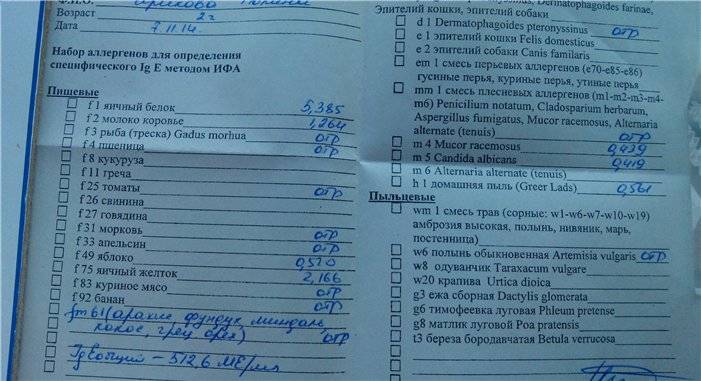 Ф.И.О.
Возраст 2 г
Дата 7.11.14
Набор аллергенов для определения
специфического Ig E методом ИФА
Пищевые
f 1 яичный белок 5,385
f 2 молоко коровье 1,264
f 3 рыба (треска) Gadus morhua отр
f 4 пшеница отр
f 8 кукуруза
f 11 греча
f 25 томаты отр
f 26 свинина
f 27 говядина
f 31 морковь отр
f 33 апельсин отр
f 49 яблоко 0,510
f 75 яичный желток 2,166
f 83 куриное мясо отр
f 92 банан отр
fm 61 (арахис фундук, миндаль,
какао, грец орех) отр
Ig E общий – 512,6 МЕ/мл
Dermatophagoides farinae,
Эпителий кошки, эпителий собаки
d 1 Dermatophagoides pteronyssinus отр
e 1 эпителий кошки Felis domesticus
e 2 эпителий собаки Canis familaris
em 1 смесь перьевых аллергенов (e70-e85-e86)
гусиные перья, куриные перья, утиные перья
mm 1 смесь плесневых аллергенов (m1-m2-m3-m4-
m6) Penicilium notatum, Cladosporium herbarum,
Aspergillus fumigatus, Mucor racemosus, Alternaria
alternate (tenuis) отр
m 4 Mucor racemosus 0,439
m 5 Candida albicans 0,419
m 6 Alternaria alternate (tenuis)
h 1 домашняя пыль (Greer Lads) 0,561
Пыльцевые
wm 1 смесь трав (сорные: w1-w6-w7-w10-w19)
амброзия высокая, полынь, нивяник, марь,
постенница)
w6 полынь обыкновенная Artemisia vulgaris отр
w8 одуванчик Taraxacum vulgare
w20 крапива Urtica dioica
g3 ежа сборная Dactylis glomerata
g6 тимофеевка луговая Phleum pretense
g8 матлик луговой Poa pratensis
t3 береза бородавчатая Betula verrucosa